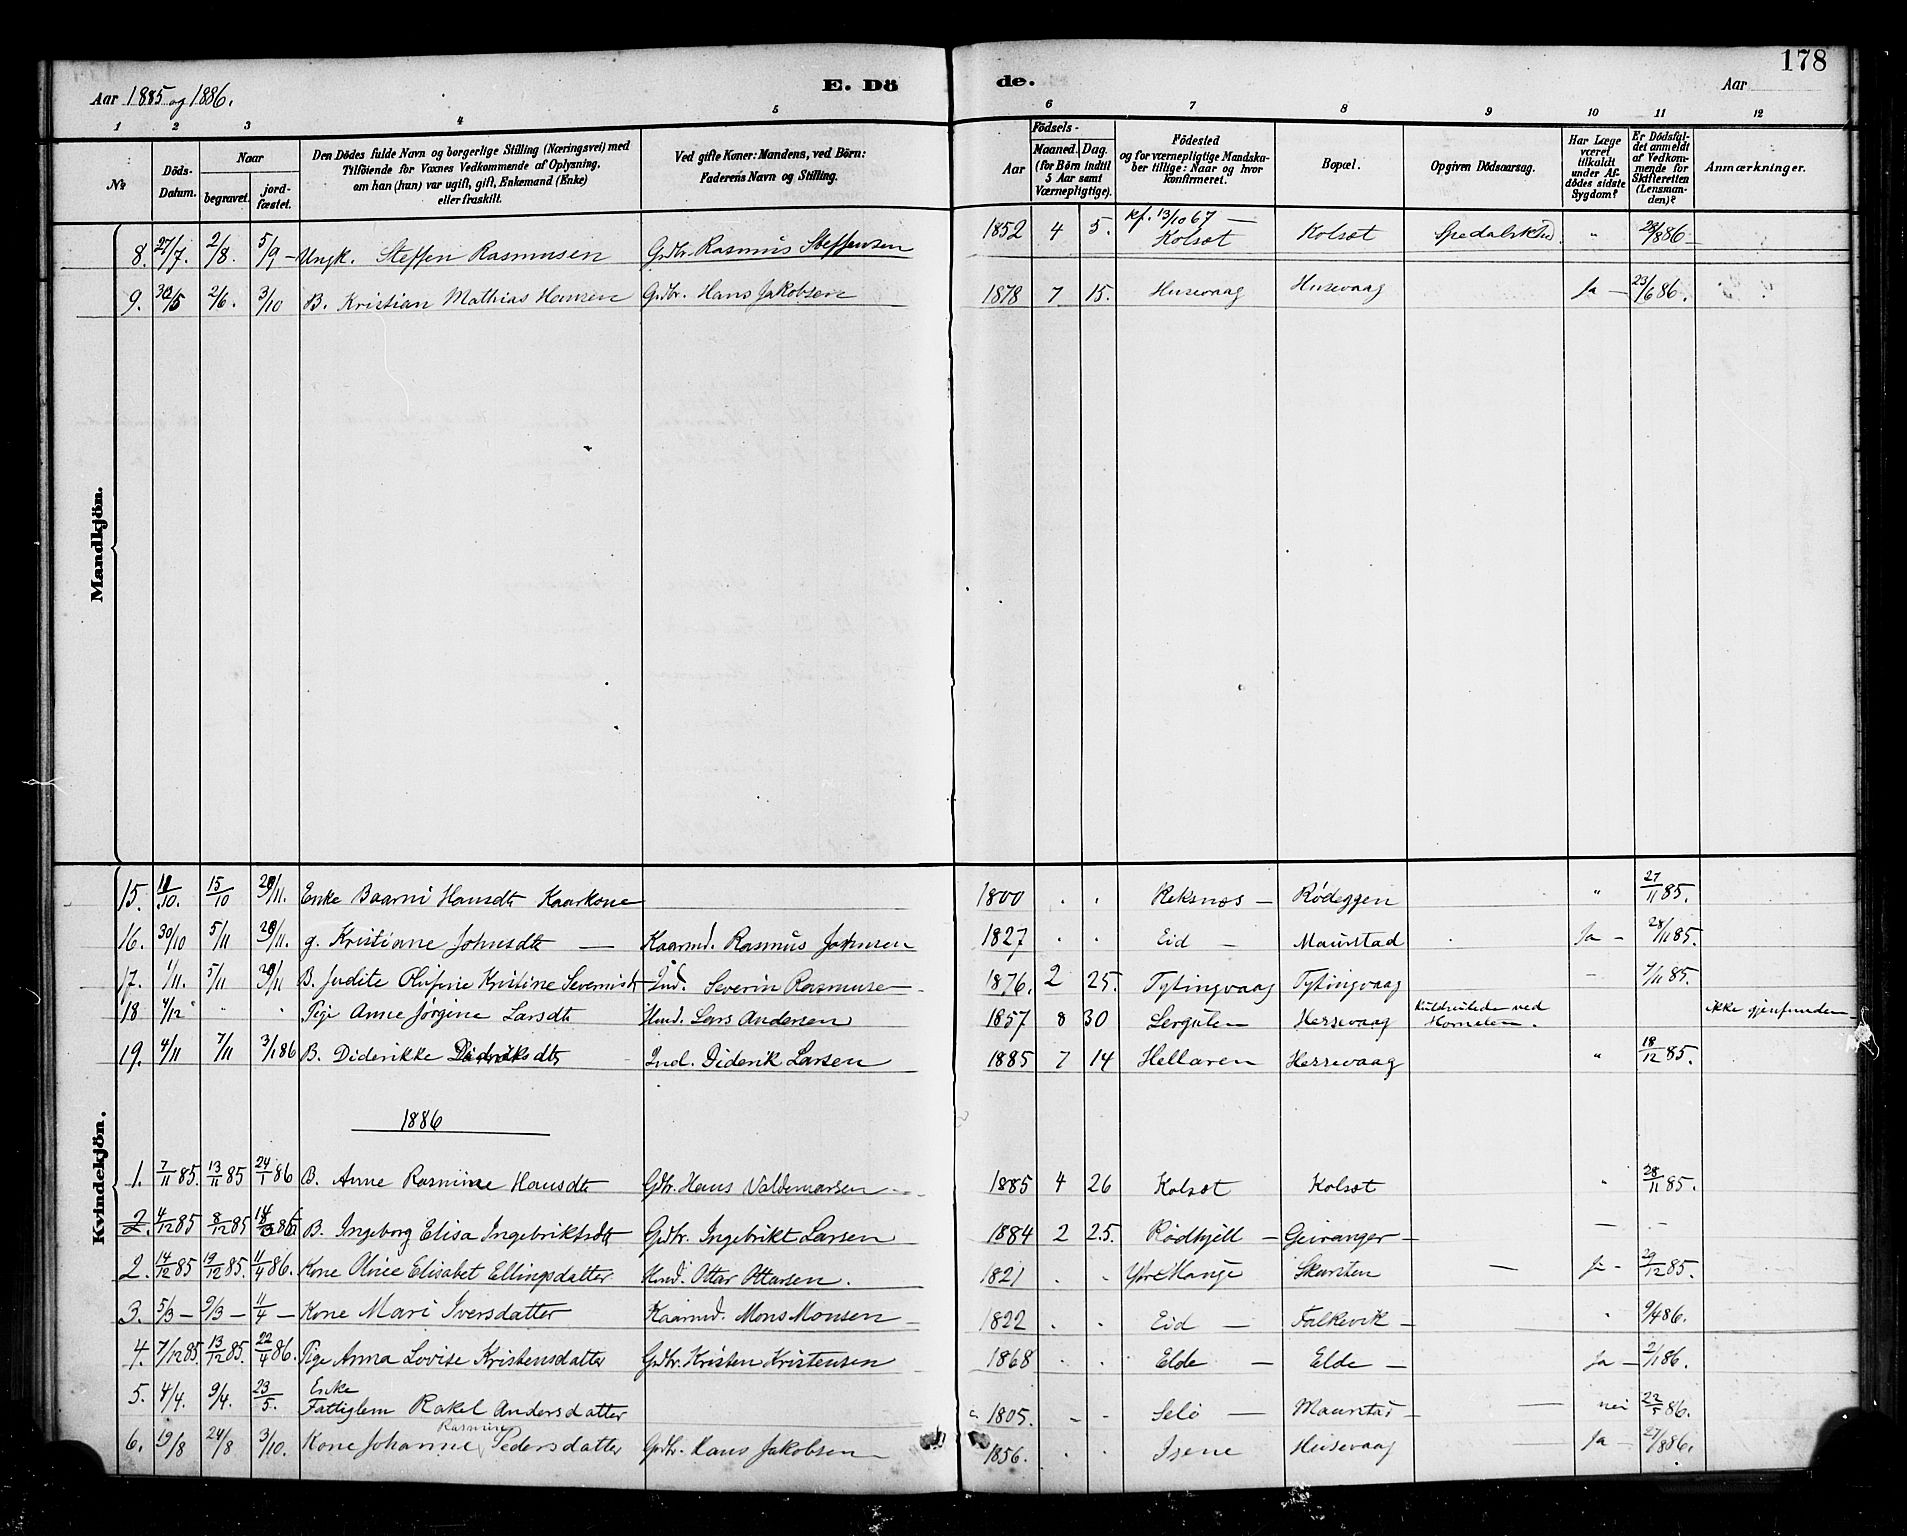 178
Aar 1885 og 1886.
E. Dö de.
Aar
1 2 3 4 5 6 7 8 9 10 11 12
№
Döds-Datum.
Naar
begravet.
jord-fæstet.
Den Dödes fulde Navn og borgerlige Stilling (Næringsvei) med
Tilföiende for Voxnes Vedkommende af Oplysning,
om han (hun) var ugift, gift, Enkemand (Enke)
eller fraskilt.
Ved gifte Koner: Mandens, ved Börn:
Faderens Navn og Stilling.
Födsels-
Aar
Maaned. Dag.
(for Börn indtil
5 Aar samt
Værnepligtige).
Födested
og for værnepligtige Mandska-
ber tillige: Naar og hvor
konfirmeret.
Bopæl.
Opgiven Dödsaarsag.
Har Læge
været
tilkaldt
under Af-
dödes sidste
Sygdom?
Er Dödsfal-
det anmeldt
af Vedkom-
mende for
Skifteretten
(Lensman-
den)?
Anmærkninger.
Mandkjön.
8. 27/7. 2/8. 5/9 – Ungk. Steffen Rasmusen Grdbr. Rasmus Steffensen 1852 4 5. kf. 13/10 67 – Kolset Kolset Spedalskhed „ 28/8 86 –
9. 30/5 2/6. 3/10 B. Kristian Mathias Hansen Grdbr. Hans Jakobsen 1878 7 15. Husevaag Husevaag Ja – 23/6 86.
Kvindekjön.
15. 11/10. 15/10 29/11. Enke Baarni Hansdtr Kaarkone 1800 . . Reksnes – Rødeggen „ 27/11 85.
16. 30/10 5/11 29/11. g. Kristiane Johnsdtr – Kaarmd. Rasmus Johnsen 1827 . . Eid – Maurstad Ja – 28/11 85.
17. 1/11. 5/11 29/11 B. Judite Olufine Kristine Severinsdtr Ind. Severin Rasmusen 1876. 2 25. Tytingvaag Tytingvaag – 7/11 85.
18 4/12 „ „ Pige Anne Jørgine Larsdtr Hmd. Lars Andersen 1857 8 30 Hersevaag ved Hornelen. ikke gjenfunden
19. 4/11 7/11 3/1 86 B. Diderikke Dideriksdtr Ind. Diderik Larsen 1885 7 14 Hellaren Hersevaag „ 18/12 85.
1886
1. 7/11 85. 13/11 85 24/1 86 B. Anne Rasmine Hansdtr Gdbr. Hans Valdemarsen 1885 4 26 Kolset Kolset „ 28/11 85.
2. 4/12 85 8/12 85 14/3 86 B. Ingeborg Elisa Ingebriktsdtr Grdbr. Ingebrikt Larsen 1884 2 25. Rødhjell – Geiranger – – –
2. 14/12 85 19/12 85. 11/4 86. Kone Oline Elisabet Ellingsdatter Hmd. Ottar Ottarsen. 1821 . . Skarsten – Ja – 29/12 85.
3. 5/3 – 9/3 – 11/4 – Kone Mari Iversdatter Kaarmd. Mons Monsen 1822 . . Eid – Falkevik – „ 9/4 86.
4. 7/12 85. 13/12 85. 22/4 86. Pige Anna Lovise Kristensdatter Grdbr. Kristen Kristensen 1868 . . Elde – Elde – Ja – 2/1 86.
5. 4/4. 9/4. 23/5. Enke Fattiglem Rakel Andersdatter 1805. – – Selö – Maurstad – – nei 22/5 86.
6. 19/8 24/8 3/10. Kone Johanne Rasmine Pedersdatter Grdbr. Hans Jakobsen 1856. . . Isene Husevaag Ja – 27/8 86.